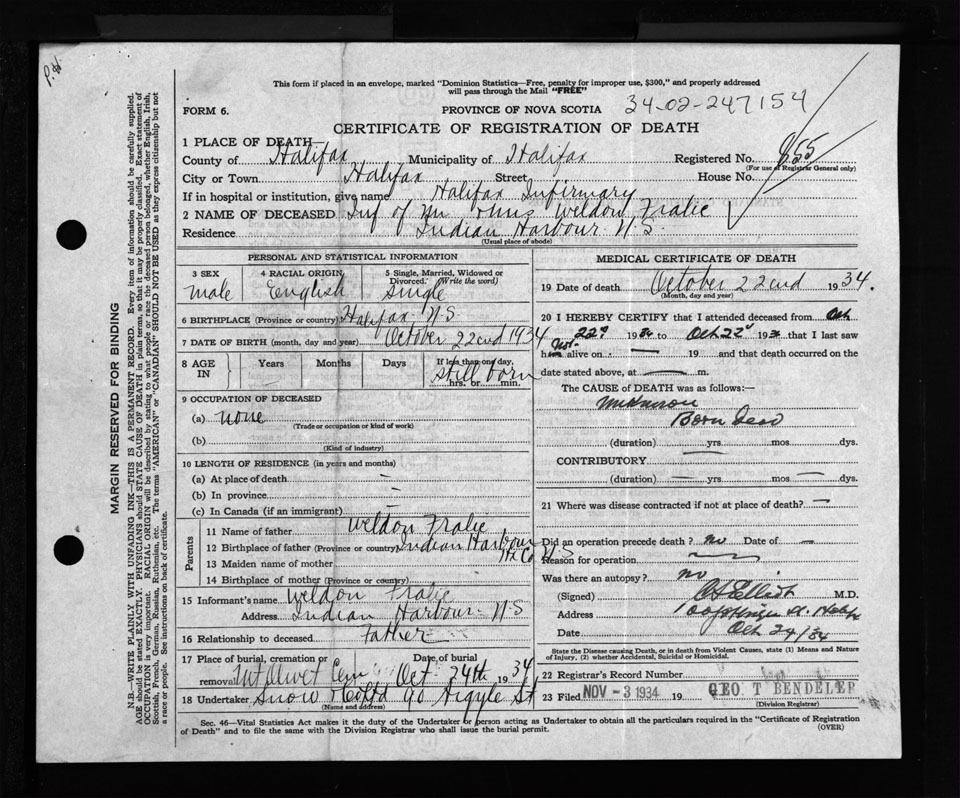 This form if placed in an envelope, marked "Dominion Statistics—Free, penalty for improper use, $300," and properly addressed
will pass through the Mail "FREE"
FORM 6.
PROVINCE OF NOVA SCOTIA
34-02-247154
CERTIFICATE OF REGISTRATION OF DEATH
1 PLACE OF DEATH
County of Halifax Municipality of Halifax Registered No. 855
(For use of Registrar General only)
City or Town Halifax Street House No.
If in hospital or institution, give name Halifax Infirmary
2 NAME OF DECEASED Inf of Weldon Fralic
Residence Indian Harbour N.S.
(Usual place of abode)
PERSONAL AND STATISTICAL INFORMATION
3 SEX
male
4 RACIAL ORIGIN
English
5 Single, Married, Widowed or
Divorced. (Write the word)
Single
6 BIRTHPLACE (Province or country) Halifax N.S.
7 DATE OF BIRTH (month, day and year) October 22nd 1934
8 AGE IN
Years Months Days
If less than one day,
still born
hrs. or min.
9 OCCUPATION OF DECEASED
(a) none
(Trade or occupation or kind of work)
(b)
(Kind of industry)
10 LENGTH OF RESIDENCE (in years and months)
(a) At place of death —
(b) In province —
(c) In Canada (if an immigrant)
Parents
11 Name of father Weldon Fralic
12 Birthplace of father (Province or country) Indian Harbour Hx Co N.S
13 Maiden name of mother
14 Birthplace of mother (Province or country)
15 Informant's name Weldon Fralic
Address Indian Harbour N-S
16 Relationship to deceased Father
17 Place of burial, cremation or removal Mt Olivet Cem
Date of burial Oct 24th 1934
18 Undertaker Snow & Co Ltd 90 Argyle St
(Name and address)
MEDICAL CERTIFICATE OF DEATH
19 Date of death October 22nd 1934.
(Month, day and year)
20 I HEREBY CERTIFY that I attended deceased from Oct
22 1934 to Oct 22 1934 that I last saw
h alive on — 19 and that death occurred on the
date stated above, at — m.
The CAUSE of DEATH was as follows:—
Unknown
Born Dead
(duration) yrs. mos. dys.
CONTRIBUTORY
(duration) — yrs. mos — dys.
21 Where was disease contracted if not at place of death? —
Did an operation precede death? no Date of —
Reason for operation
Was there an autopsy? no
(Signed) Elliott M.D.
Address
Date Oct 24/34
State the Disease causing Death, or in death from Violent Causes, state (1) Means and Nature
of Injury, (2) whether Accidental, Suicidal or Homicidal.
22 Registrar's Record Number
23 Filed NOV - 3 1934 19 GEO. T BENDELER
(Division Registrar)
Sec. 46—Vital Statistics Act makes it the duty of the Undertaker or person acting as Undertaker to obtain all the particulars required in the "Certificate of Registration
of Death" and to file the same with the Division Registrar who shall issue the burial permit.
(OVER)
MARGIN RESERVED FOR BINDING
N.B.—WRITE PLAINLY WITH UNFADING INK—THIS IS A PERMANENT RECORD. Every item of information should be carefully supplied.
AGE should be stated EXACTLY. PHYSICIANS should STATE CAUSE OF DEATH in plain terms, so that it may be properly classified. Exact statement of
OCCUPATION is very important. RACIAL ORIGIN will be described by stating to what people or race the deceased person belonged, whether English, Irish,
Scottish, French, German, Russian, Ruthenian, etc. The terms "AMERICAN" or "CANADIAN" SHOULD NOT BE USED as they express citizenship but not
a race or people. See instructions on back of certificate.